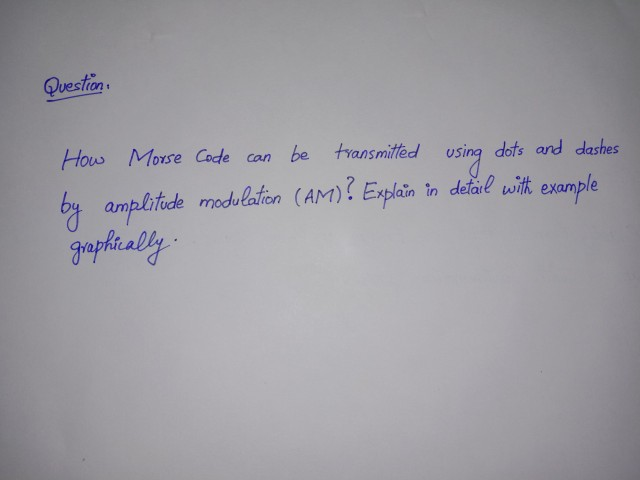 Question.
How Morse Code can be transmitted using dots and dashes
by amplitude modulation (AM)? Explain in detail with example
graphically.